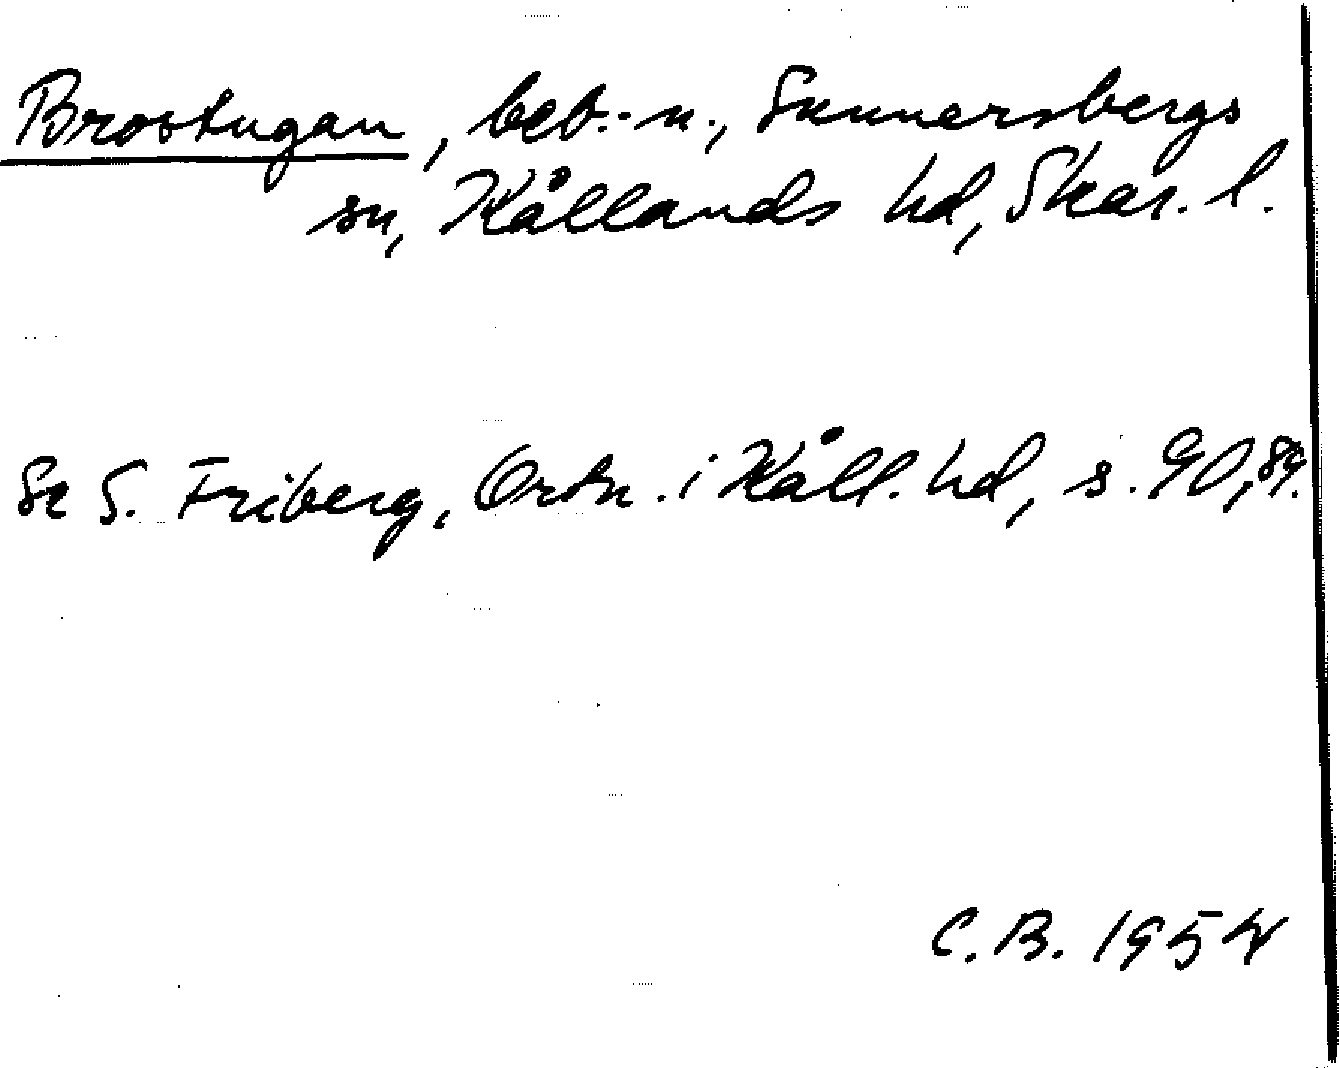 Brostugan, beb.-n., Sunnersbergs
sn, Kållands hd, Skar. l.
Se S. Friberg, Ortn. i Kåll. hd, s. 90, 89.
C. B. 1954